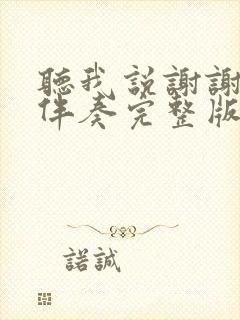 聽我説謝謝
伴奏完整版
諾誠